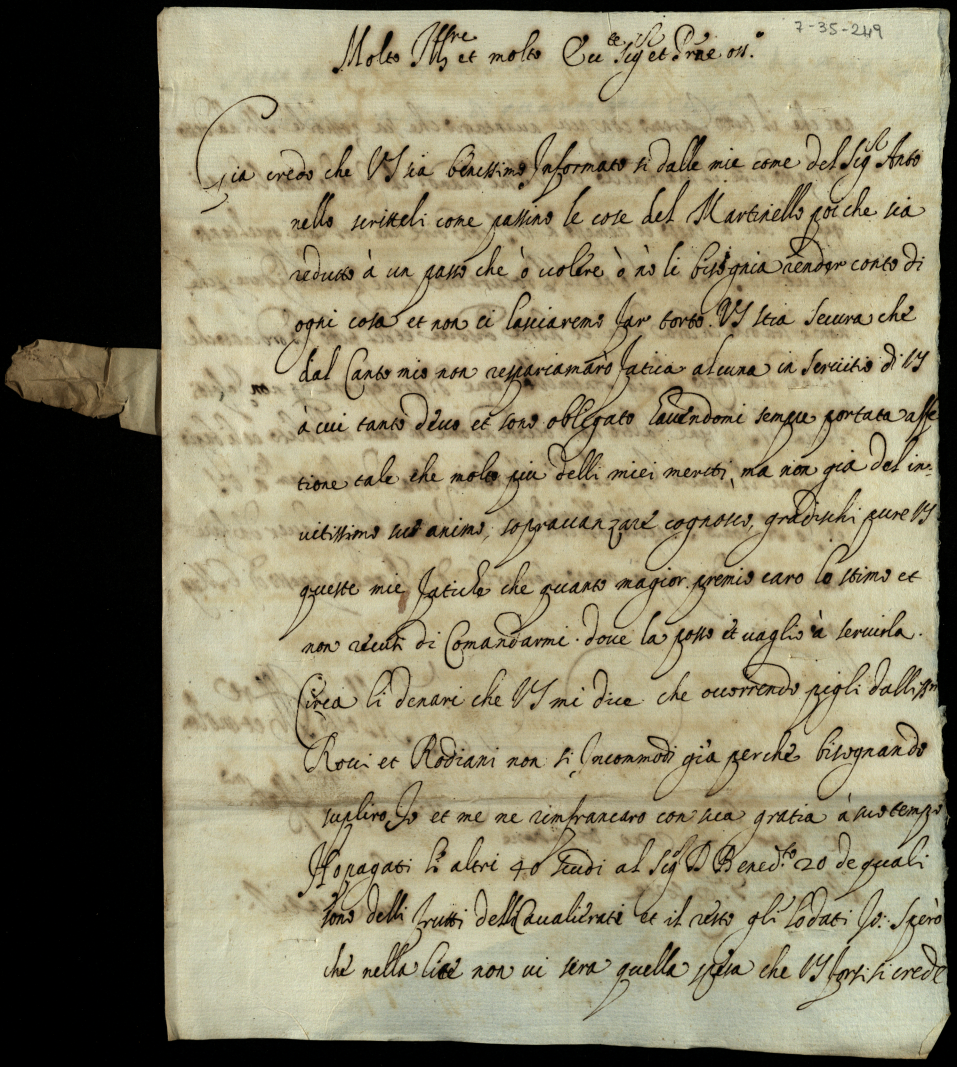 7-35-249
Molto Ill.re et molto Ecc.te Sig.r et Pr'ne oss.o
Gia credo che VS sia benissimo Informato si dalle mie come del Sig.r Anto
nello scritteli come passino le cose del Martinello poi che sia
redutto à un passo che ò uolere ò nò li bisognia render conto di
ogni cosa et non ci lasciaremo far torto. VS stia secura che
dal Canto mio non resparmiarò fatica alcuna in Seruitio di VS
à cui tanto deuo et sono oblegato hauendomi sempre portata affe
tione tale che molto piu delli miei meriti, ma non già del in-
uitissimo suo animo, soprauanzare cognosco, gradischi pure VS
queste mie fatiche che quanto magior premio caro lo stimo et
non recusi di Comandarmi. doue la posso et uaglio à seruirla.
Circa li denari che VS mi dice che occorrendo pigli dalli ss.ri
Rocci et Rodiani non si Incommodi già perchè bisognando
supliro Io et me ne rinfrancaro con sua gratia à suo tempo
Ho pagati li altri 40 scudi al Sig.r D Bened.to 20 de quali
sono delli frutti delli Caualierati et il resto gli hò dati Io. Sperò
che nella lite non ui sera quella spesa che VS forsi si crede